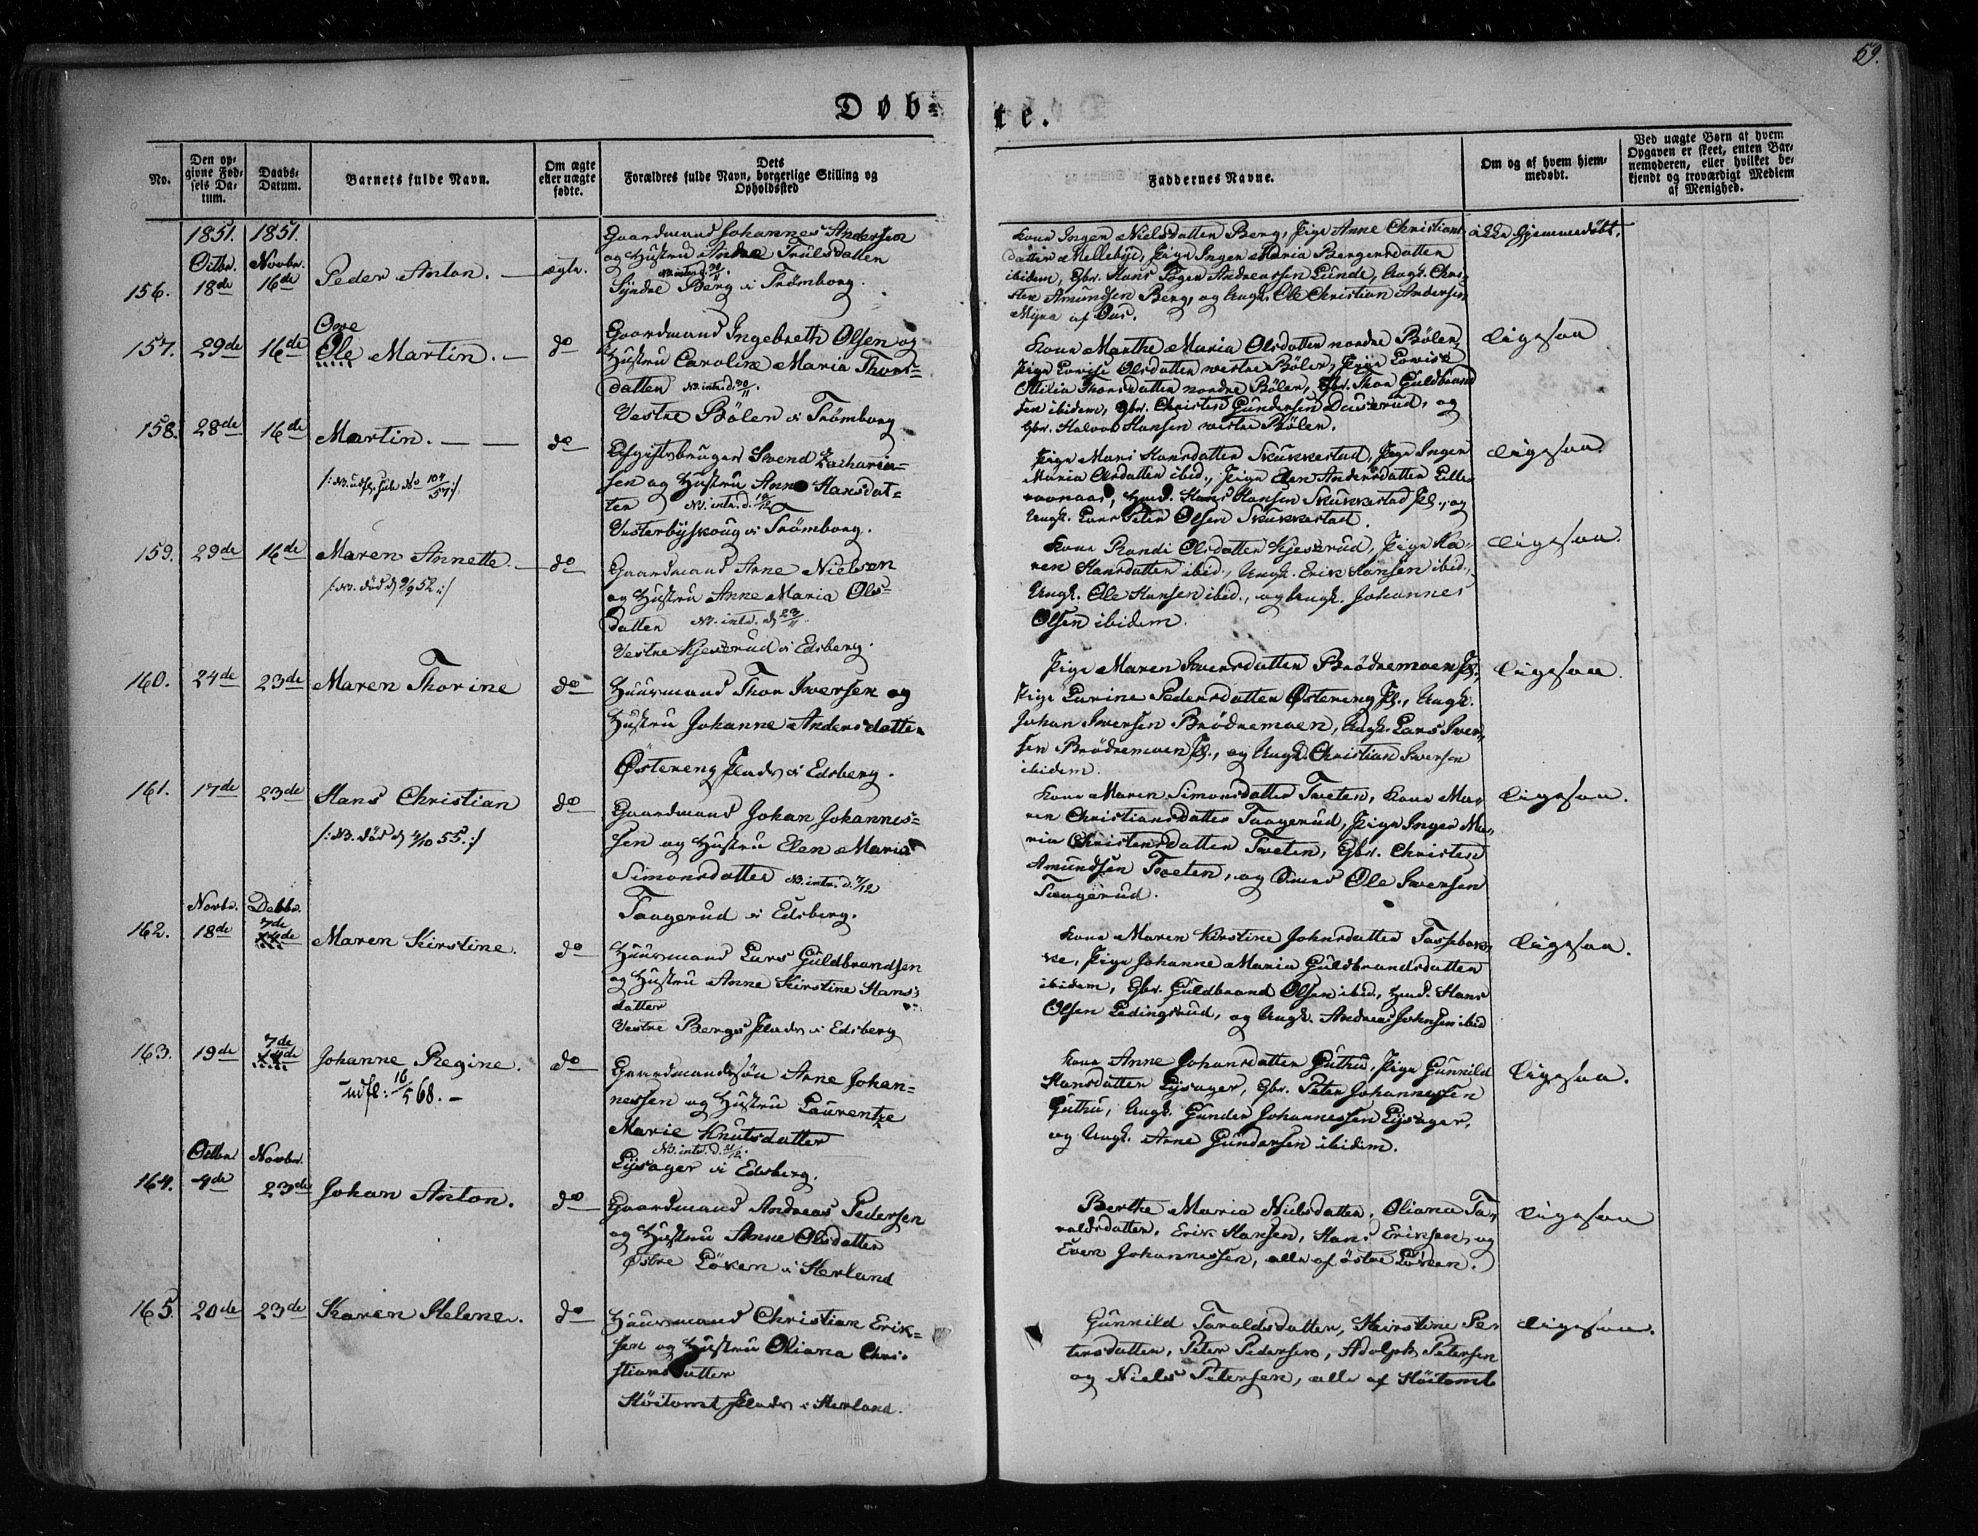 59.
Døb-
te.
No.
Den op-
givne Fød-
sels Da-
tum.
Daabs-
Datum.
Barnets fulde Navn.
Om ægte
eller uægte
fødte.
Dets
Forældres fulde Navn, borgerlige Stilling og
Opholdssted
Faddernes Navne.
Om og af hvem hjem-
medøbt.
Ved uægte Børn af hvem
Opgaven er skeet, enten Bar-
nemoderen, eller hvilket be-
kjendt og troværdigt Medlem
af Menighed.
1851. 1851.
Octbr. Novbr.
156. 18de 16de Peder Anton. — ægte.
Gaardmand Johannes Andersen
og Hustru Andrea Trulsdatter
Søndre Berg i Trømborg.
Kone Inger Nielsdatter Berg, Pige Anne Christians-
datter Mellebye, Pige Inger Maria Bergersdatter
ibidem, Gbr. Hans Piger Andreassen Lunde, Ungk. Chri-
sten Amundsen Berg, og Ungk. Ole Christian Andersen
Myra af Aas.
ikke hjemmedøbt.
Ove
157. 29de 16de Ole Martin. — do
Gaardmand Ingebreth Olsen og
Hustru Caroline Maria Thors-
datter NB. intr. d. 30/11.
Vestre Bøler i Trømborg
Kone Marthe Maria Olsdatter nordre Bøler,
Pige Lovise Olsdatter vestre Bøler, Pige Lovise
Ottilia Thorsdatter nordre Bøler, Gbr. Thor Guldbrand
sen ibidem, Gbr. Christen Gundersen Dauserud, og
Gbr. Halvor Hansen vestre Bølen.
Ligesaa
158. 28de 16de Martin. — — do
/: NB. udfl. see No 104/57 :/
Afgiftsbruger Svend Zacharia-
sen og Hustru Anne Hansdat-
ter NB. intr. d. 10/12
Vesterbyskoug i Trømborg.
Pige Mari Hansdatter Skukkestad, Pige Inger
Maria Olsdatter ibid., Pige Elen Andersdatter Lille
ravnaas, Hmd. Hans Hansen Skukkestad Pl., og
Ungk. Lars Peter Olsen Skukkestad.
Ligesaa.
159. 29de 16de Maren Annette. — do
/: NB. død d 9/9 52 :/
Gaardmand Arne Nielsen
og Hustru Anne Maria Ols-
datter NB. intr. d 23/11.
Vestre Kjeserud i Edsberg.
Kone Randi Olsdatter Kjeserud, Pige Ka-
ren Hansdatter ibid., Ungk. Erik Hansen ibid.,
Ungk. Ole Hansen ibid., og Ungk. Johannes
Olsen ibidem.
Ligesaa.
160. 24de 23de Maren Thorine do
Huusmand Thor Iversen og
Hustru Johanne Andersdatter
Østereng Plads i Edsberg.
Pige Maren Iversdatter Brødremoen Pl.,
Pige Larine Pedersdatter Østereng Pl., Ungk.
Johan Iversen Brødremoen, Ungk. Lars Iver-
sen Brødremoen Pl., og Ungk. Christian Iversen
ibidem.
Ligesaa.
161. 17de 23de Hans Christian do
/: NB. død d 2/10 55 :/
Gaardmand Johan Johannes-
sen og Hustru Elen Maria
Simonsdatter NB. intr. d. 7/12
Taagerud i Edsberg.
Kone Maren Simonsdatter Tveten, Kone Ma-
ren Christiansdatter Taagerud, Pige Inger Ma-
ria Christensdatter Tveten, Gbr. Christen
Amundsen Tveten, og Ole Iversen
Taagerud.
Ligesaa.
Novbr. Decbr.
7de
162. 18de 14de Maren Kirstine. do
Huusmand Lars Guldbrandsen
og Hustru Anne Kirstine Hans-
datter
Vestre Bergs Plads i Edsberg
Kone Maren Kirstine Johnsdatter Tassebæk-
ke, Pige Johanne Maria Guldbrandsdatter
ibidem, Gbr. Guldbrand Olsen ibid, Hmd. Hans
Olsen Ledingsrud, og Ungk. Andreas Johnsen ibid
Ligesaa.
7de
163. 19de 14de Johanne Regine. do
udfl: 16/5 68. —
Gaardmandssøn Arne Johan-
nessen og Hustru Laurentze
Marie Knutsdatter
NB. intr. d. 21/12.
Lysager i Edsberg.
Kone Anne Johansdatter Guthu, Pige Gunnild
Hansdatter Lysager, Gbr. Peter Johannessen
Guthu, Ungk. Gunder Johannessen Lysager,
og Ungk. Arne Gundersen ibidem.
Ligesaa.
Octbr. Novbr.
164. 4de 23de Johan Anton. do
Gaardmand Andreas Pedersen
og Hustru Anne Olsdatter
Østre Løken i Herland
Berthe Maria Nielsdatter, Oliana Ta-
raldsdatter, Erik Hansen, Hans Eriksen, og
Even Johannessen, alle af østre Løken.
Ligesaa
165. 20de 23de Karen Helene. do
Huusmand Christian Erik-
sen og Hustru Oliana Chri-
stiansdatter
Høitomt Plads i Herland.
Gunnild Taraldsdatter, Kirstine Pe-
tersdatter, Peter Pedersen, Adolph Petersen
og Niels Petersen, alle af Høitomt
Ligesaa.